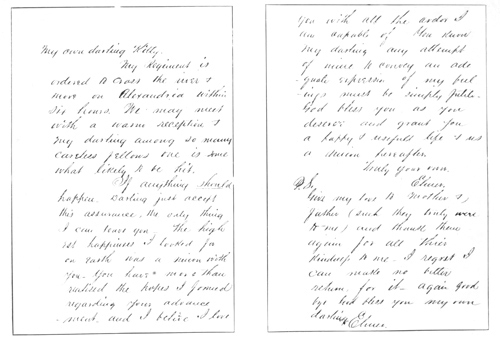 My own darling Kitty
My Regiment is
ordered to cross the river &
move on Alexandria within
six hours. We may meet
with a warm reception &
my darling among so many
careless fellows one is some
what likely to be hit.
If anything should
happen. Darling just accept
this assurance, the only thing
I can leave you. The high
est happiness I looked for
on earth was a union with
you. You have more than
realised the hopes I formed
regarding your advance
-ment, and I believe I love
you with all the ardor I
am capable of. You know
my darling any attempt
of mine to convey an ade
quate expression of my feel
-ings must be simply futile.
God bless you as you
deserve and grant you
a happy & useful life & us
a union hereafter.
Truly your own,
P.S. Elmer.
Give my love to mother &
father (such they truly were
to me) and thank them
again for all their
kindness to me. I regret I
can make no better
return for it. again good
bye. God bless you my own
darling. Elmer.